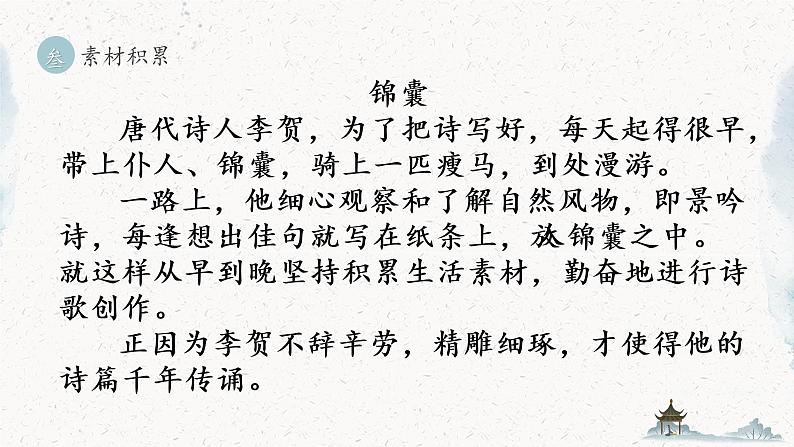 叁 素材积累
锦囊
唐代诗人李贺，为了把诗写好，每天起得很早，
带上仆人、锦囊，骑上一匹瘦马，到处漫游。
一路上，他细心观察和了解自然风物，即景吟
诗，每逢想出佳句就写在纸条上，放入锦囊之中。
就这样从早到晚坚持积累生活素材，勤奋地进行诗
歌创作。
正因为李贺不辞辛劳，精雕细琢，才使得他的
诗篇千年传诵。